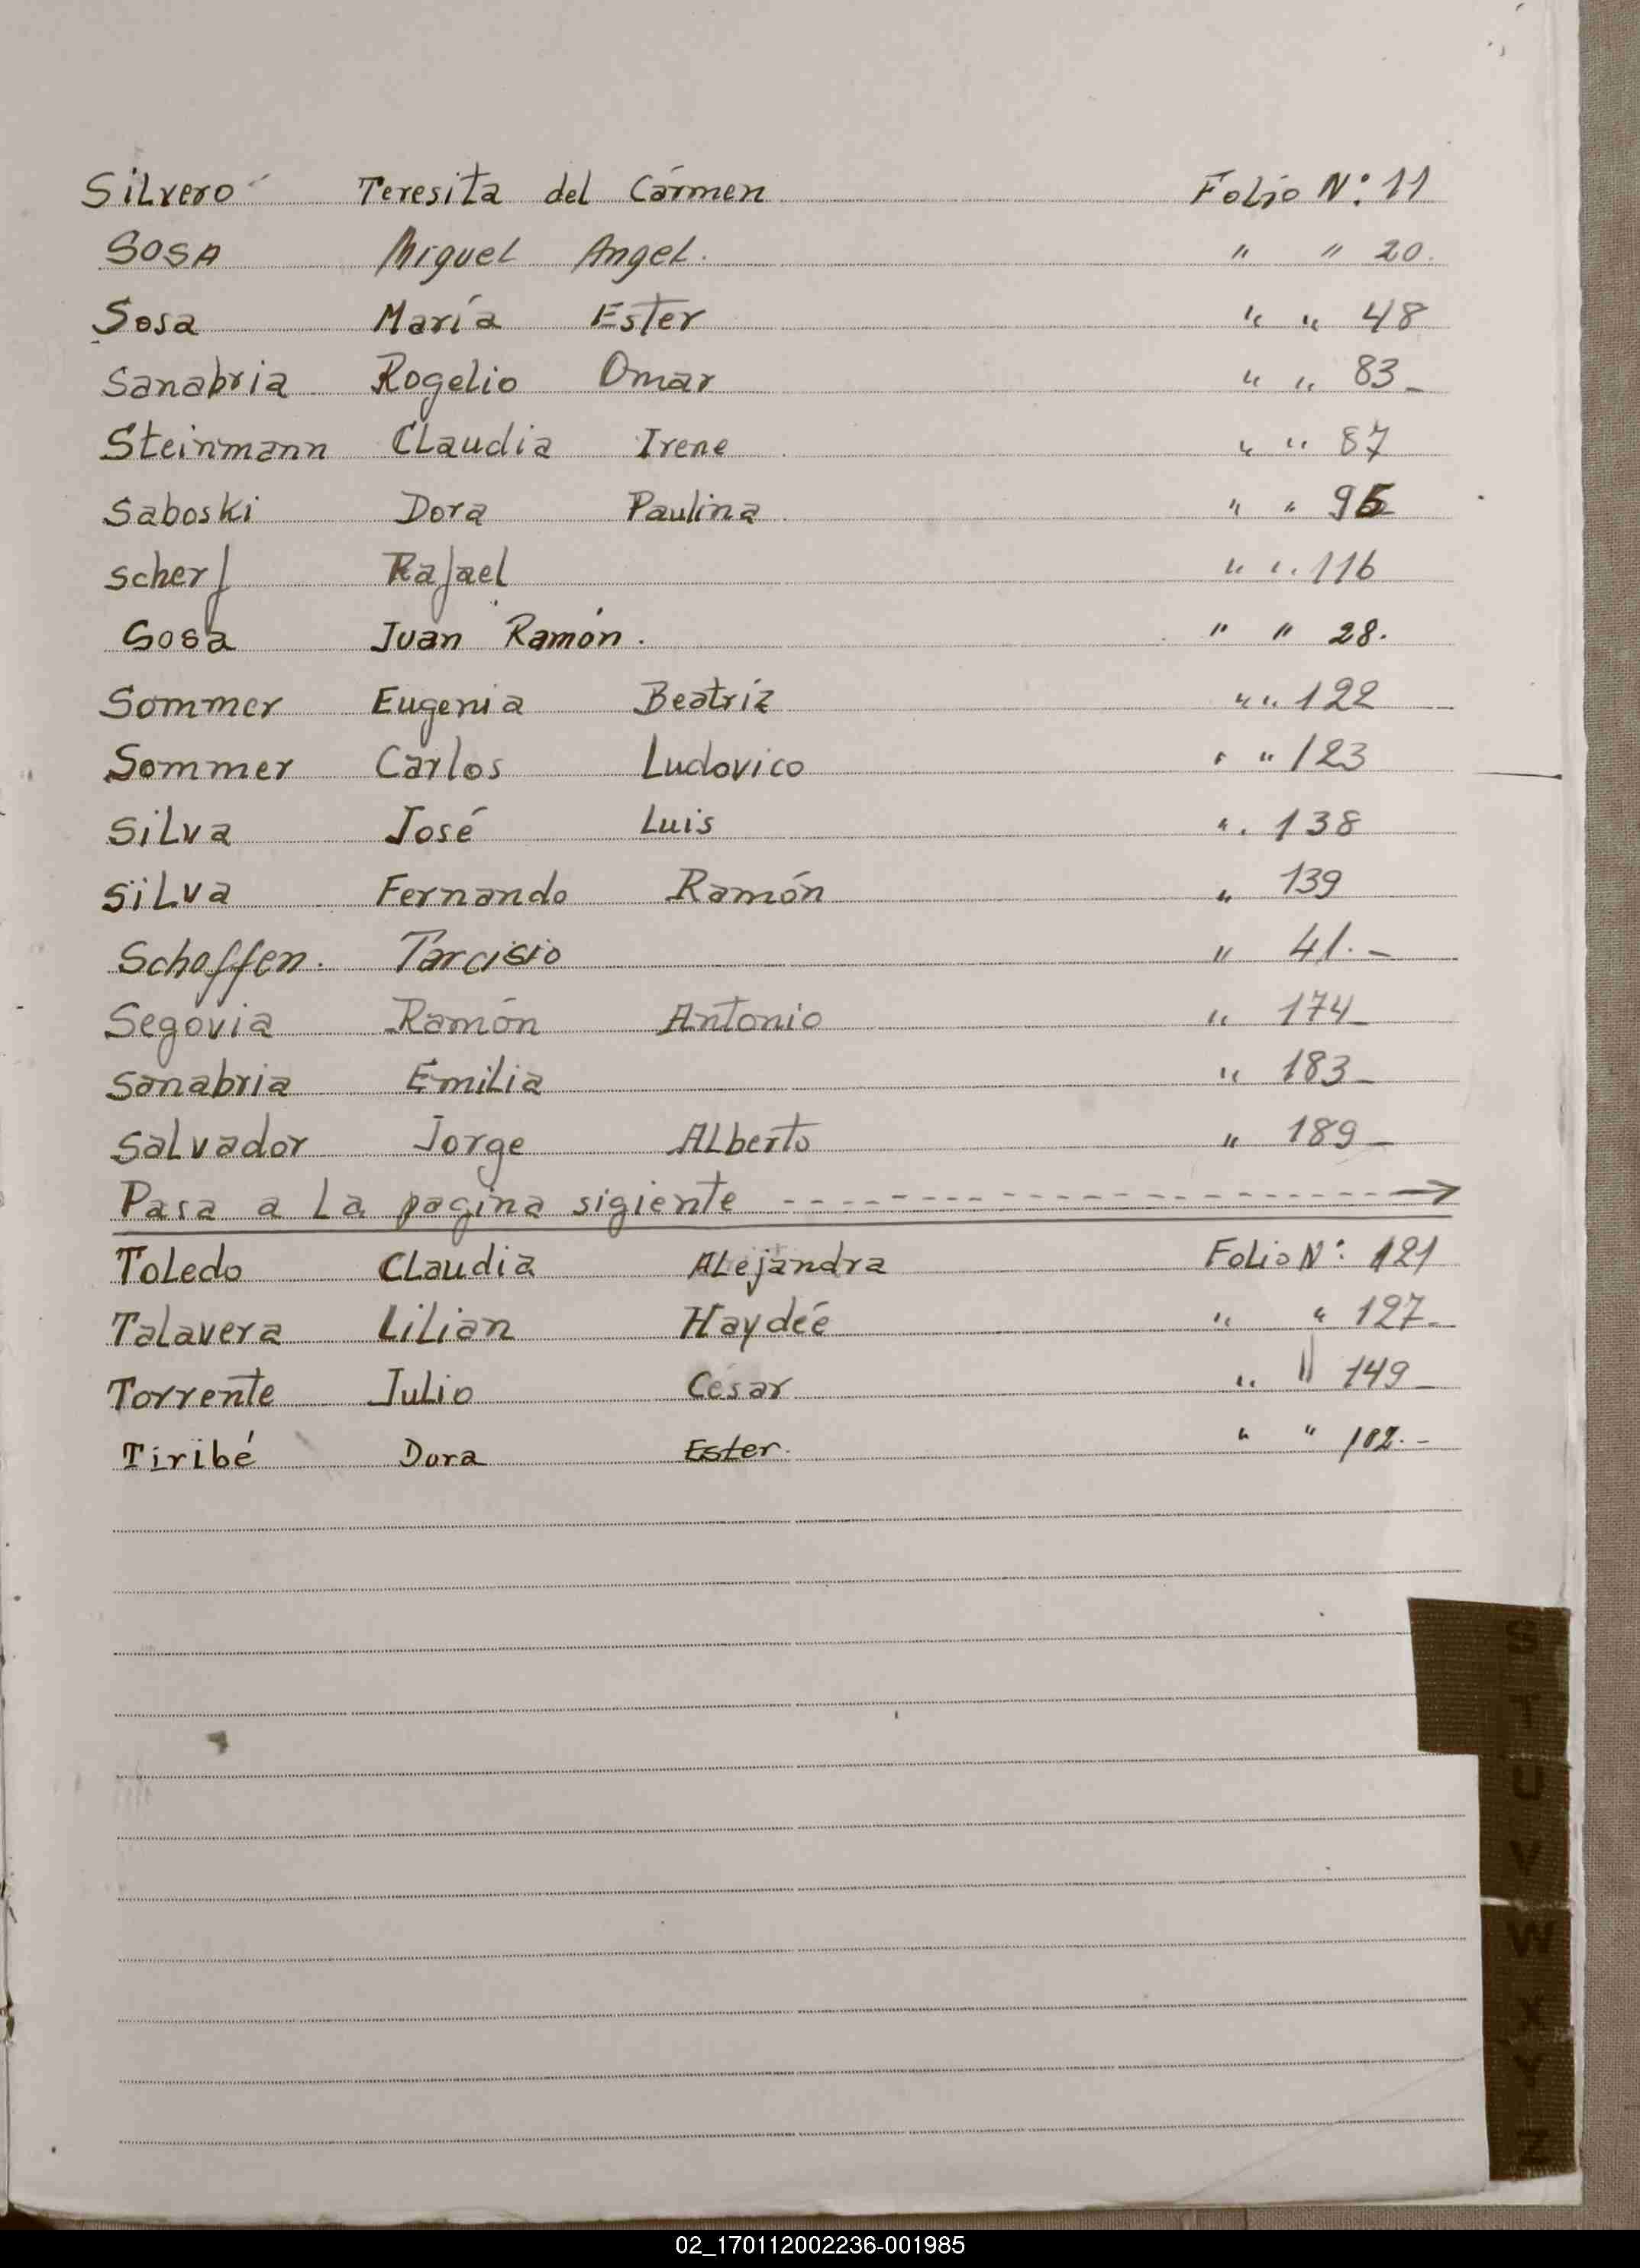 Silvero Teresita del Cármen Folio N: 11
SOSA Miguel Angel. " " 20.
Sosa María Ester " " 48
Sanabria Rogelio Omar " " 83_
Steinmann Claudia Irene " " 87
Saboski Dora Paulina " "
Scherf Rafael " " 116
Sosa Juan Ramón. " " 28.
Sommer Eugenia Beatriz " " 122
Sommer Carlos Ludovico " " 123
Silva José Luis " . 138
Silva Fernando Ramón " 139
Schoffen. Tarcisio " 41.-
Segovia Ramón Antonio " 174_
Sanabria Emilia " 183_
Salvador Jorge Alberto " 189_
Pasa a La pagina sigiente ------------------->
Toledo Claudia Alejandra Folio N: 121
Talavera Lilian Haydée " " 127_
Torrente Julio Cesar " " 149_
Tiribé Dora Ester. " "
S
T
U
V
W
X
Y
Z
02_170112002236-001985